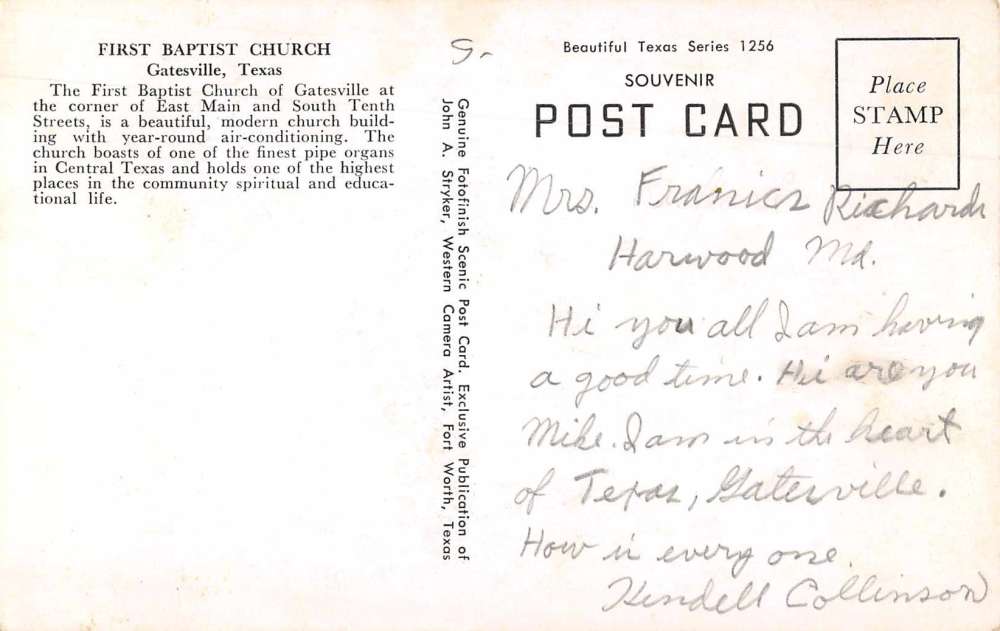 FIRST BAPTIST CHURCH
Gatesville, Texas
The First Baptist Church of Gatesville at
the corner of East Main and South Tenth
Streets, is a beautiful, modern church build-
ing with year-round air-conditioning. The
church boasts of one of the finest pipe organs
in Central Texas and holds one of the highest
places in the community spiritual and educa-
tional life.
Genuine Fotofinish Scenic Post Card. Exclusive Publication of
John A. Stryker, Western Camera Artist, Fort Worth, Texas
Beautiful Texas Series 1256
SOUVENIR
POST CARD
Place
STAMP
Here
Mrs. Franics Richards
Harwood Md.
Hi you all I am having
a good time. Hi are you
Mike. I am in the heart
of Texas, Gatesville.
How is every one.
Kendell Collinson